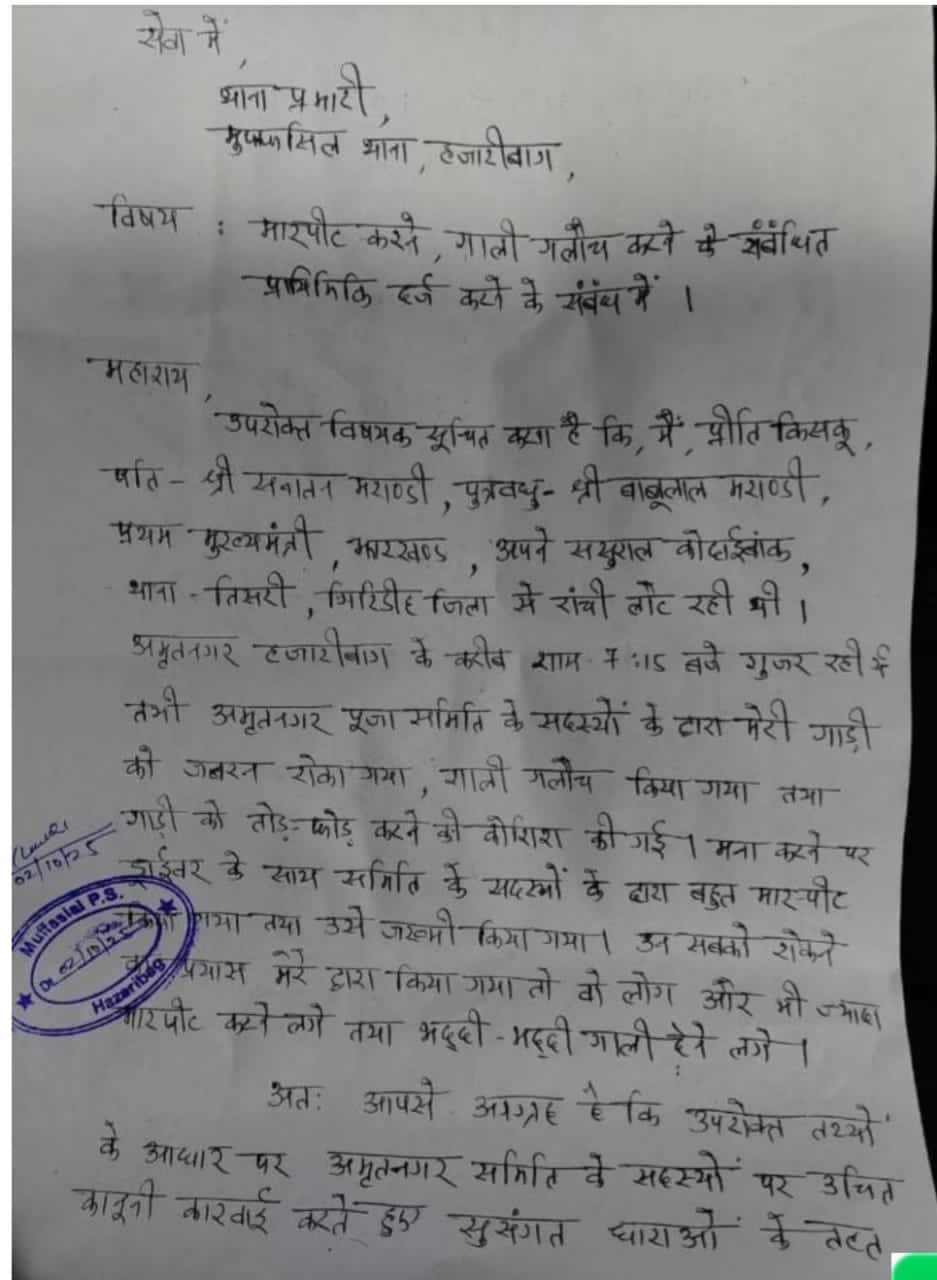 सेवा में,
थाना प्रभारी,
मुफ्फसिल थाना, हजारीबाग,
विषय : मारपीट करने, गाली गलौच करने से संबंधित
प्राथमिकि दर्ज करने के संबंध में ।
महाशय,
उपरोक्त विषयक सूचित करना है कि, मैं, प्रीति किसकू,
पति - श्री सनातन मराण्डी, पुत्रवधु - श्री बाबूलाल मराण्डी,
प्रथम मुख्यमंत्री, झारखण्ड, अपने ससुराल कोदाईबांक,
थाना - तिसरी, गिरिडीह जिला से रांची लौट रही थी ।
अमृतनगर हजारीबाग के करीब शाम 7:15 बजे गुजर रही थी
तभी अमृतनगर पूजा समिति के सदस्यों के द्वारा मेरी गाड़ी
को जबरन रोका गया, गाली गलौच किया गया तथा
गाड़ी को तोड़-फोड़ करने की कोशिश की गई । मना करने पर
ड्राईवर के साथ समिति के सदस्यों के द्वारा बहुत मार-पीट
किया गया तथा उसे जख्मी किया गया। उन सबको रोकने
का प्रयास मेरे द्वारा किया गया तो वो लोग और भी ज्यादा
मारपीट करने लगे तथा भद्दी-भद्दी गाली देने लगे ।
02/10/25
Muffasial P.S.
Dt. 02/10/25
Hazaribag
अतः आपसे आग्रह है कि उपरोक्त तथ्यों
के आधार पर अमृतनगर समिति के सदस्यों पर उचित
कानूनी कारवाई करते हुए सुसंगत धाराओं के तहत